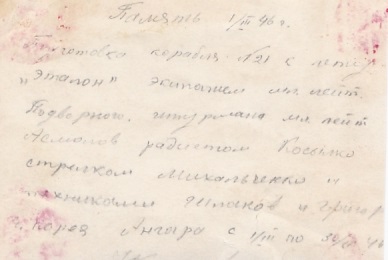 Память 1/III 46 г.
готовка корабля N21 к лету
"Эталон" экипажем мл. лейт.
Подворного, штурмана мл лейт
радистом Косенко
стрелком Михальченко и
техниками Шпаков и Григор
Корея Ангара с 1/III по